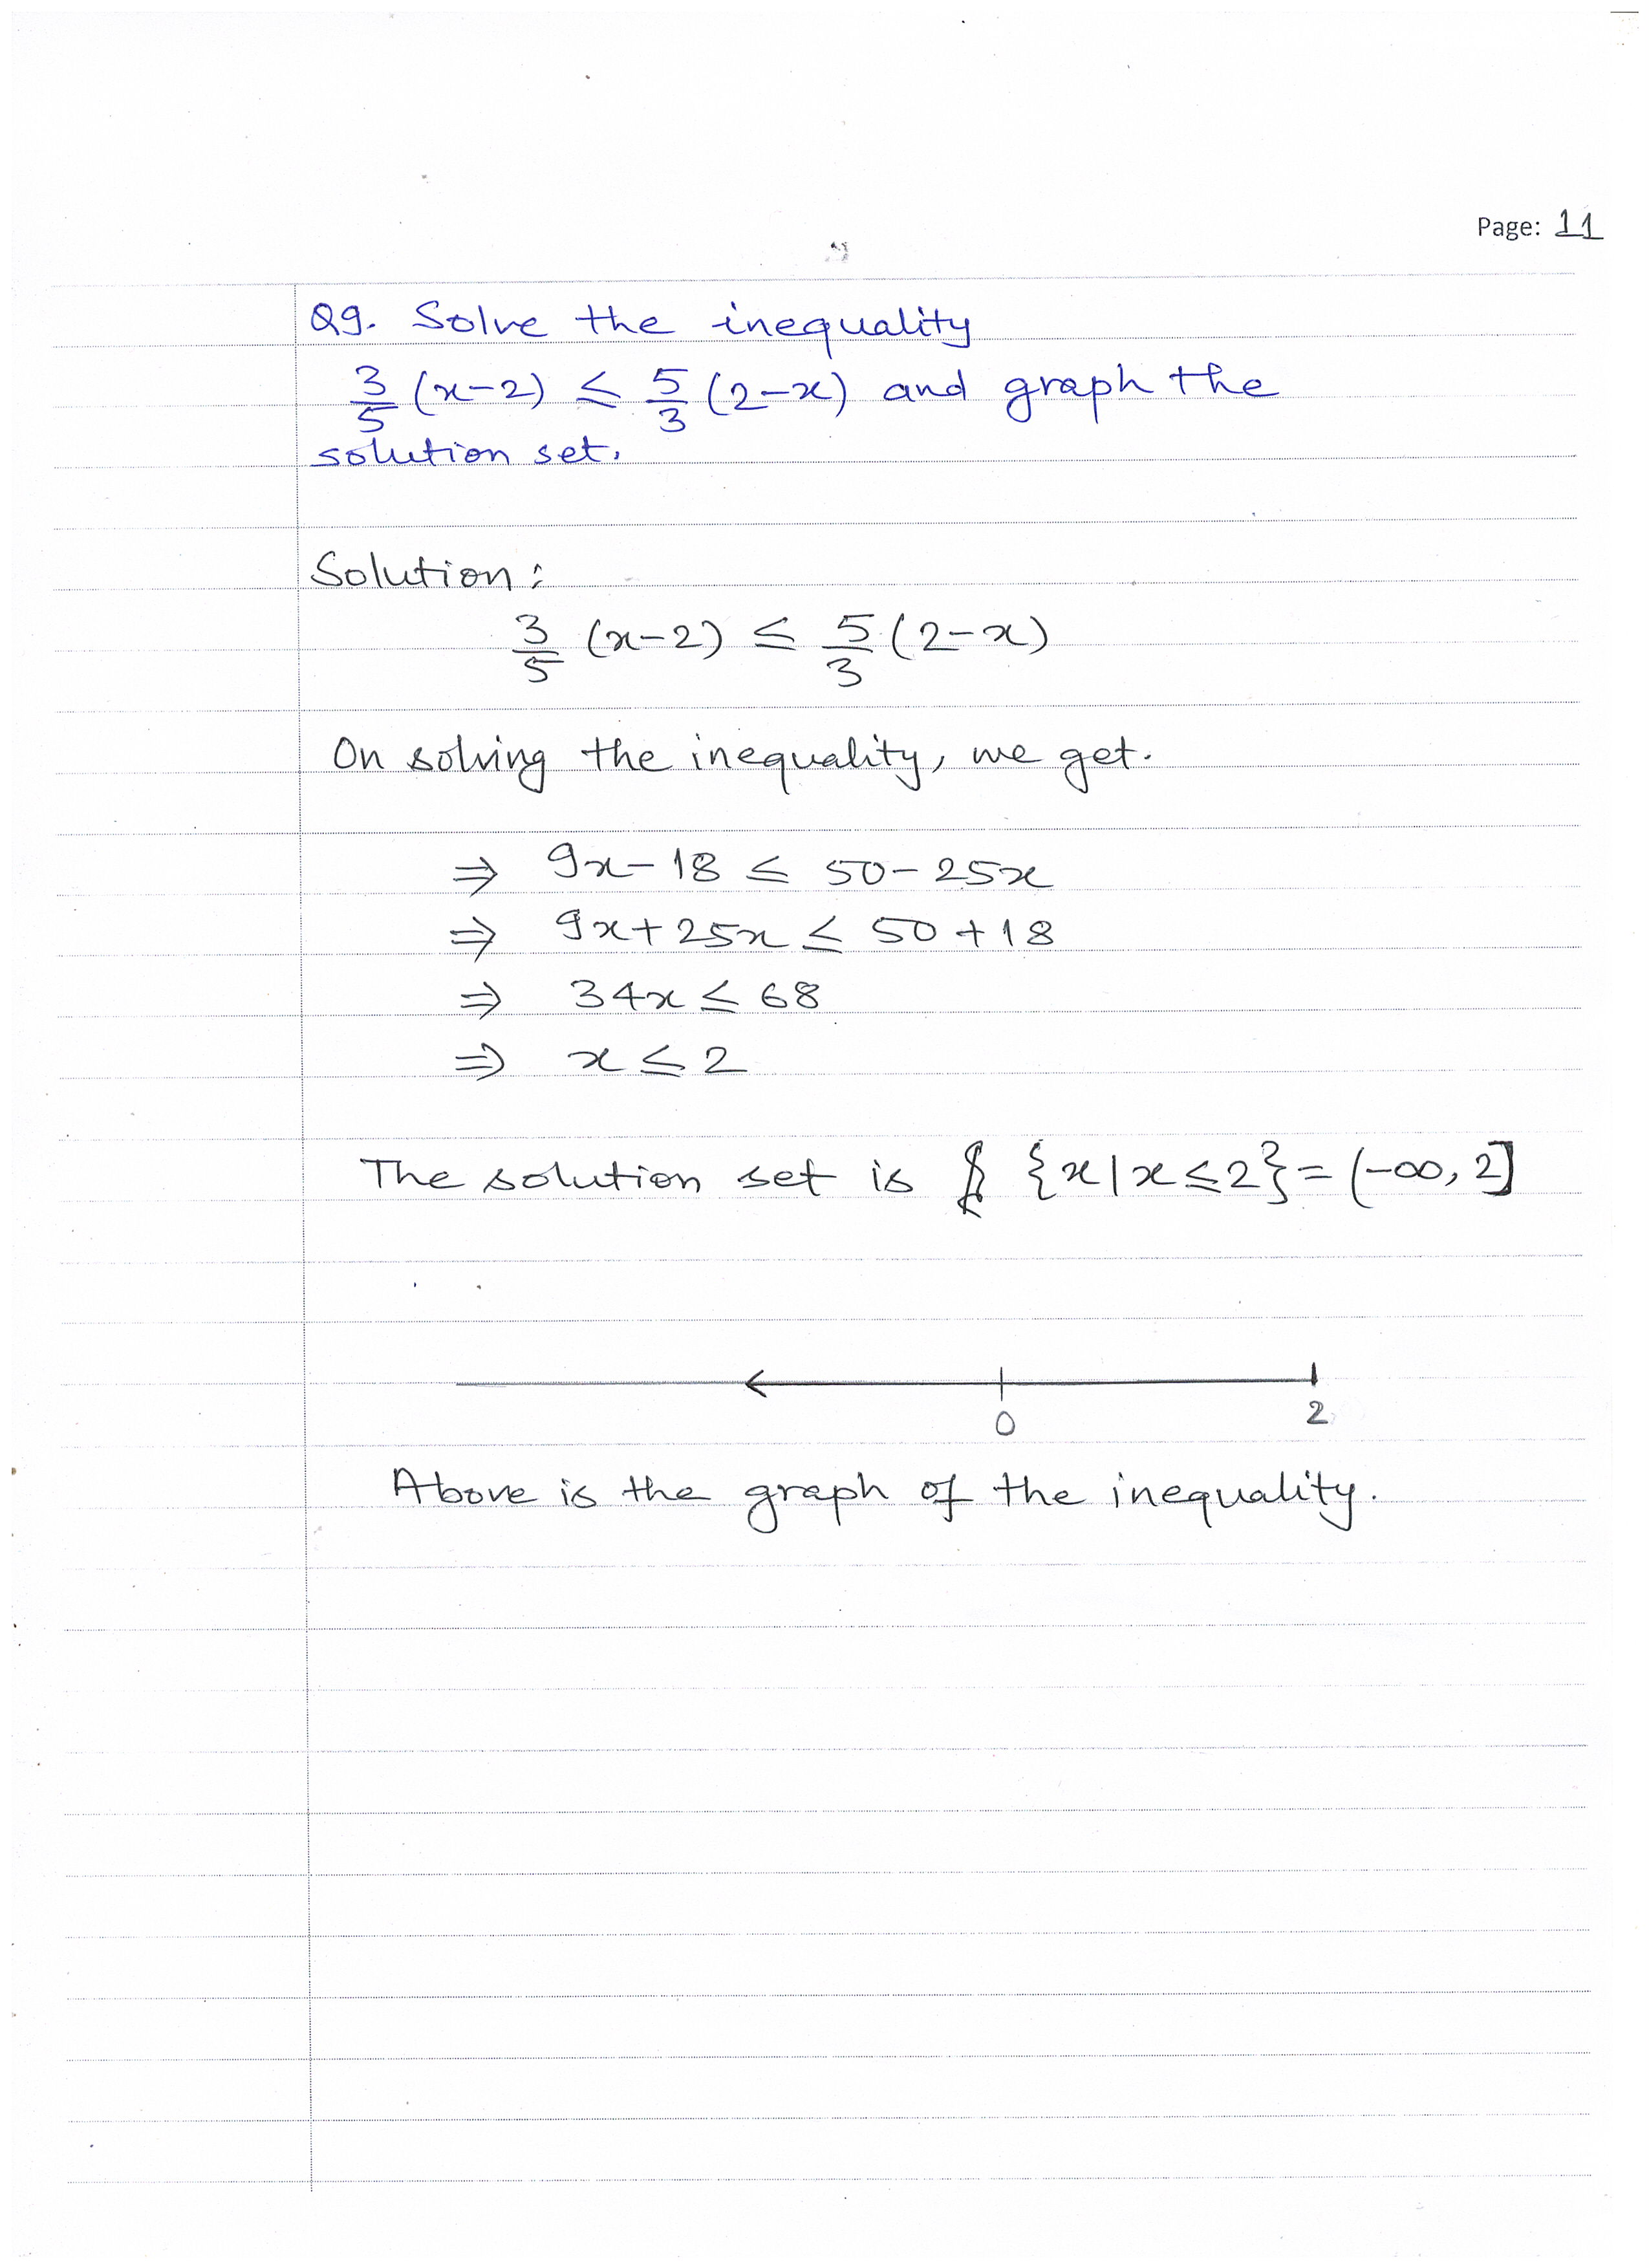 Page: 11
Q9. Solve the inequality
3/5 (x-2) ≤ 5/3 (2-x) and graph the
solution set.
Solution:
3/5 (x-2) ≤ 5/3 (2-x)
On solving the inequality, we get.
⇒ 9x-18 ≤ 50-25x
⇒ 9x+25x ≤ 50+18
⇒ 34x ≤ 68
⇒ x ≤ 2
The solution set is {x|x≤2}=(-∞,2]
0 2
Above is the graph of the inequality.